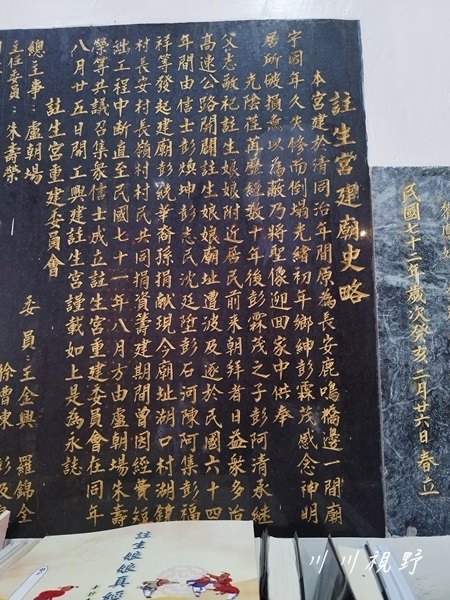 註生宮建廟史略
本宮建於清同治年間原為長安鹿鳴橋邊一間廟
宇因年久失修而倒塌光緒初年鄉紳彭霖茂感念神明
居所破損無以為蔽乃將聖像迎回家中供奉
光陰荏苒歷經數十年後彭霖茂之子彭阿清承繼
父志敬祀註生娘娘附近居民前來朝拜者日益眾多治
高速公路開闢註生娘娘廟址遭波及遂於民國六十四
年間由信士彭煥坤彭志民沈廷墊彭石河陳阿集彭福
祥等發起建廟彭統華裔孫捐獻現今廟址湖口村湖鏡
村長安村長嶺村村民共同捐資籌建期間曾因經費短
絀工程中斷直至民國七十一年八月方由盧朝場朱壽
榮等共議召集眾信士成立註生宮重建委員會在同年
八月廿五日開工興建註生宮謹載如上是為永誌
註生宮重建委員會
總主事：盧朝場
主任委員：朱壽榮
委員：王金興 羅錦全
徐曾東
民國七十二年歲次癸亥二月廿六日春立
註生娘娘真經
川川視野